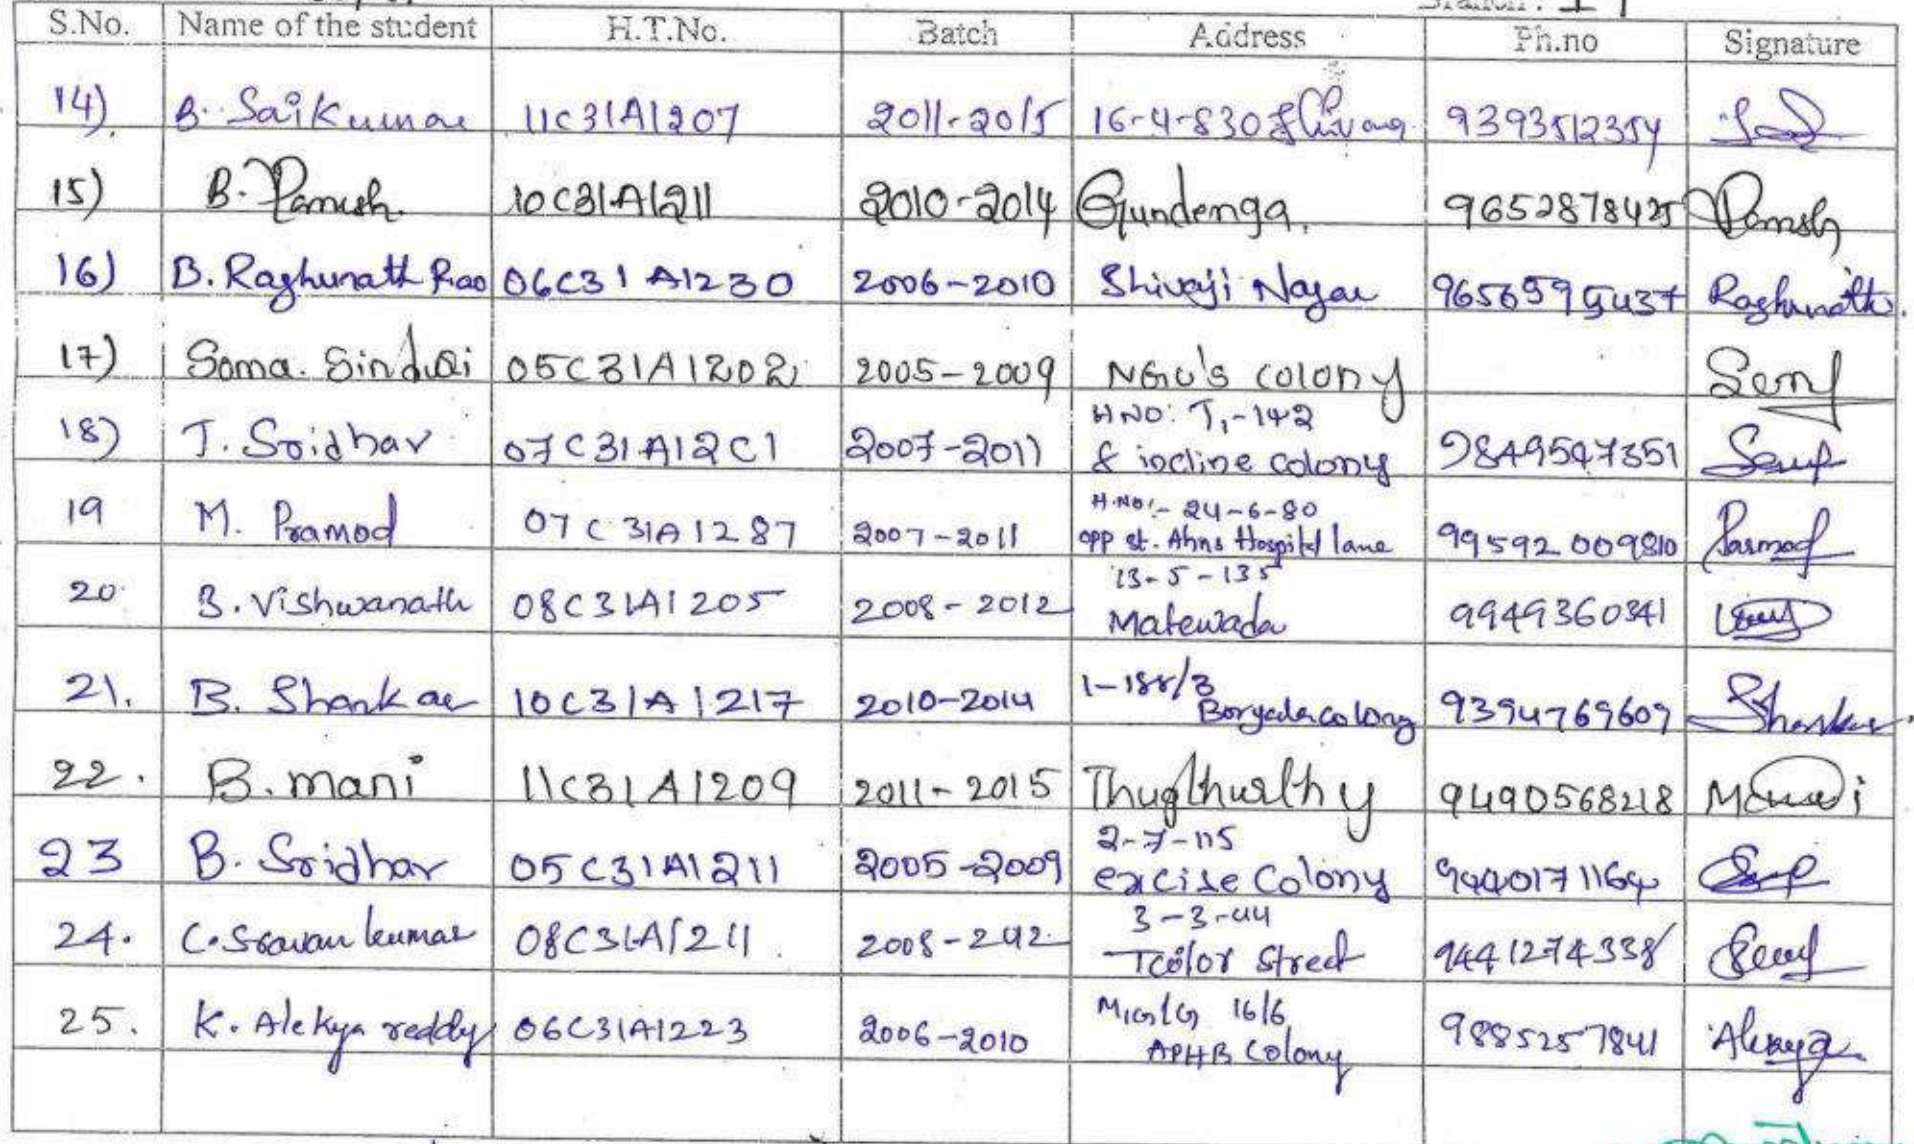 Branch: IT
S.No. Name of the student H.T.No. Batch Address Ph.no Signature
14) B. Saikumar 11C31A1207 2011-2015 16-4-830 9393512354
15) B. Ramesh 10C31A1211 2010-2014 Gundenga. 9652878425 Ramesh
16) B. Raghunath Rao 06C31A1230 2006-2010 Shivaji Nagar 9656595437 Raghunath.
17) Soma. Sindhi 05C31A1202 2005-2009 NGO's colony
H NO: T1-142
18) T. Sridhar 07C31A12C1 2007-2011 8 incline colony 9849547351
H.NO:- 24-6-80
19 M. Pramod 07C31A1287 2007-2011 opp st. Anns Hospital lane 9959200980 Parmod
13-5-135
20 B. Vishwanath 08C31A1205 2008-2012 Matewada 9949360341
1-188/3
21. B. Shankar 10C31A1217 2010-2014 colony 9394769609 Shankar.
22. B. mani 11C31A1209 2011-2015 Thugthurthy 9490568218 Mani
2-7-115
23 B. Sridhar 05C31A1211 2005-2009 excise Colony 9440171164
3-3-44
24. C. Sravan kumar 08C31A1211. 2008-2012 Street 9441274338
MIG 16/6
25. K. Alekya reddy 06C31A1223 2006-2010 APHB Colony 9885257841 Alekya